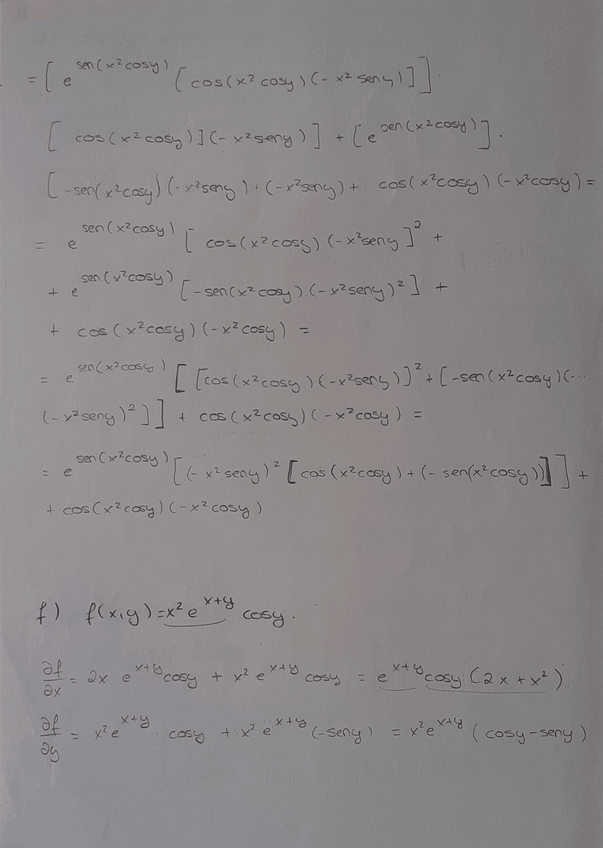 = [ e^{sen(x² cosy)} [ cos(x² cosy)(- x² seny) ] ] ·
[ cos(x² cosy) ] (- x² seny) ] + [ e^{sen(x² cosy)} ] ·
[ -sen(x² cosy) (-x² seny) · (-x² seny) + cos(x² cosy) (-x² cosy) =
= e^{sen(x² cosy)} [ cos(x² cosy) (-x² seny ]² +
+ e^{sen(x² cosy)} [ -sen(x² cosy) (-x² seny)² ] +
+ cos(x² cosy)(-x² cosy) =
= e^{sen(x² cosy)} [ [cos(x² cosy)(-x² seny)]² + [-sen(x² cosy)(...
(-x² seny)² ] ] + cos(x² cosy)(-x² cosy) =
= e^{sen(x² cosy)} [ (- x² seny)² [ cos(x² cosy) + (- sen(x² cosy)) ] ] +
+ cos(x² cosy)(-x² cosy)
f) f(x,y) = x² e^{x+y} cosy.
∂f/∂x = 2x e^{x+y} cosy + x² e^{x+y} cosy = e^{x+y} cosy (2x + x²)
∂f/∂y = x² e^{x+y} cosy + x² e^{x+y} (-seny) = x² e^{x+y} (cosy - seny)